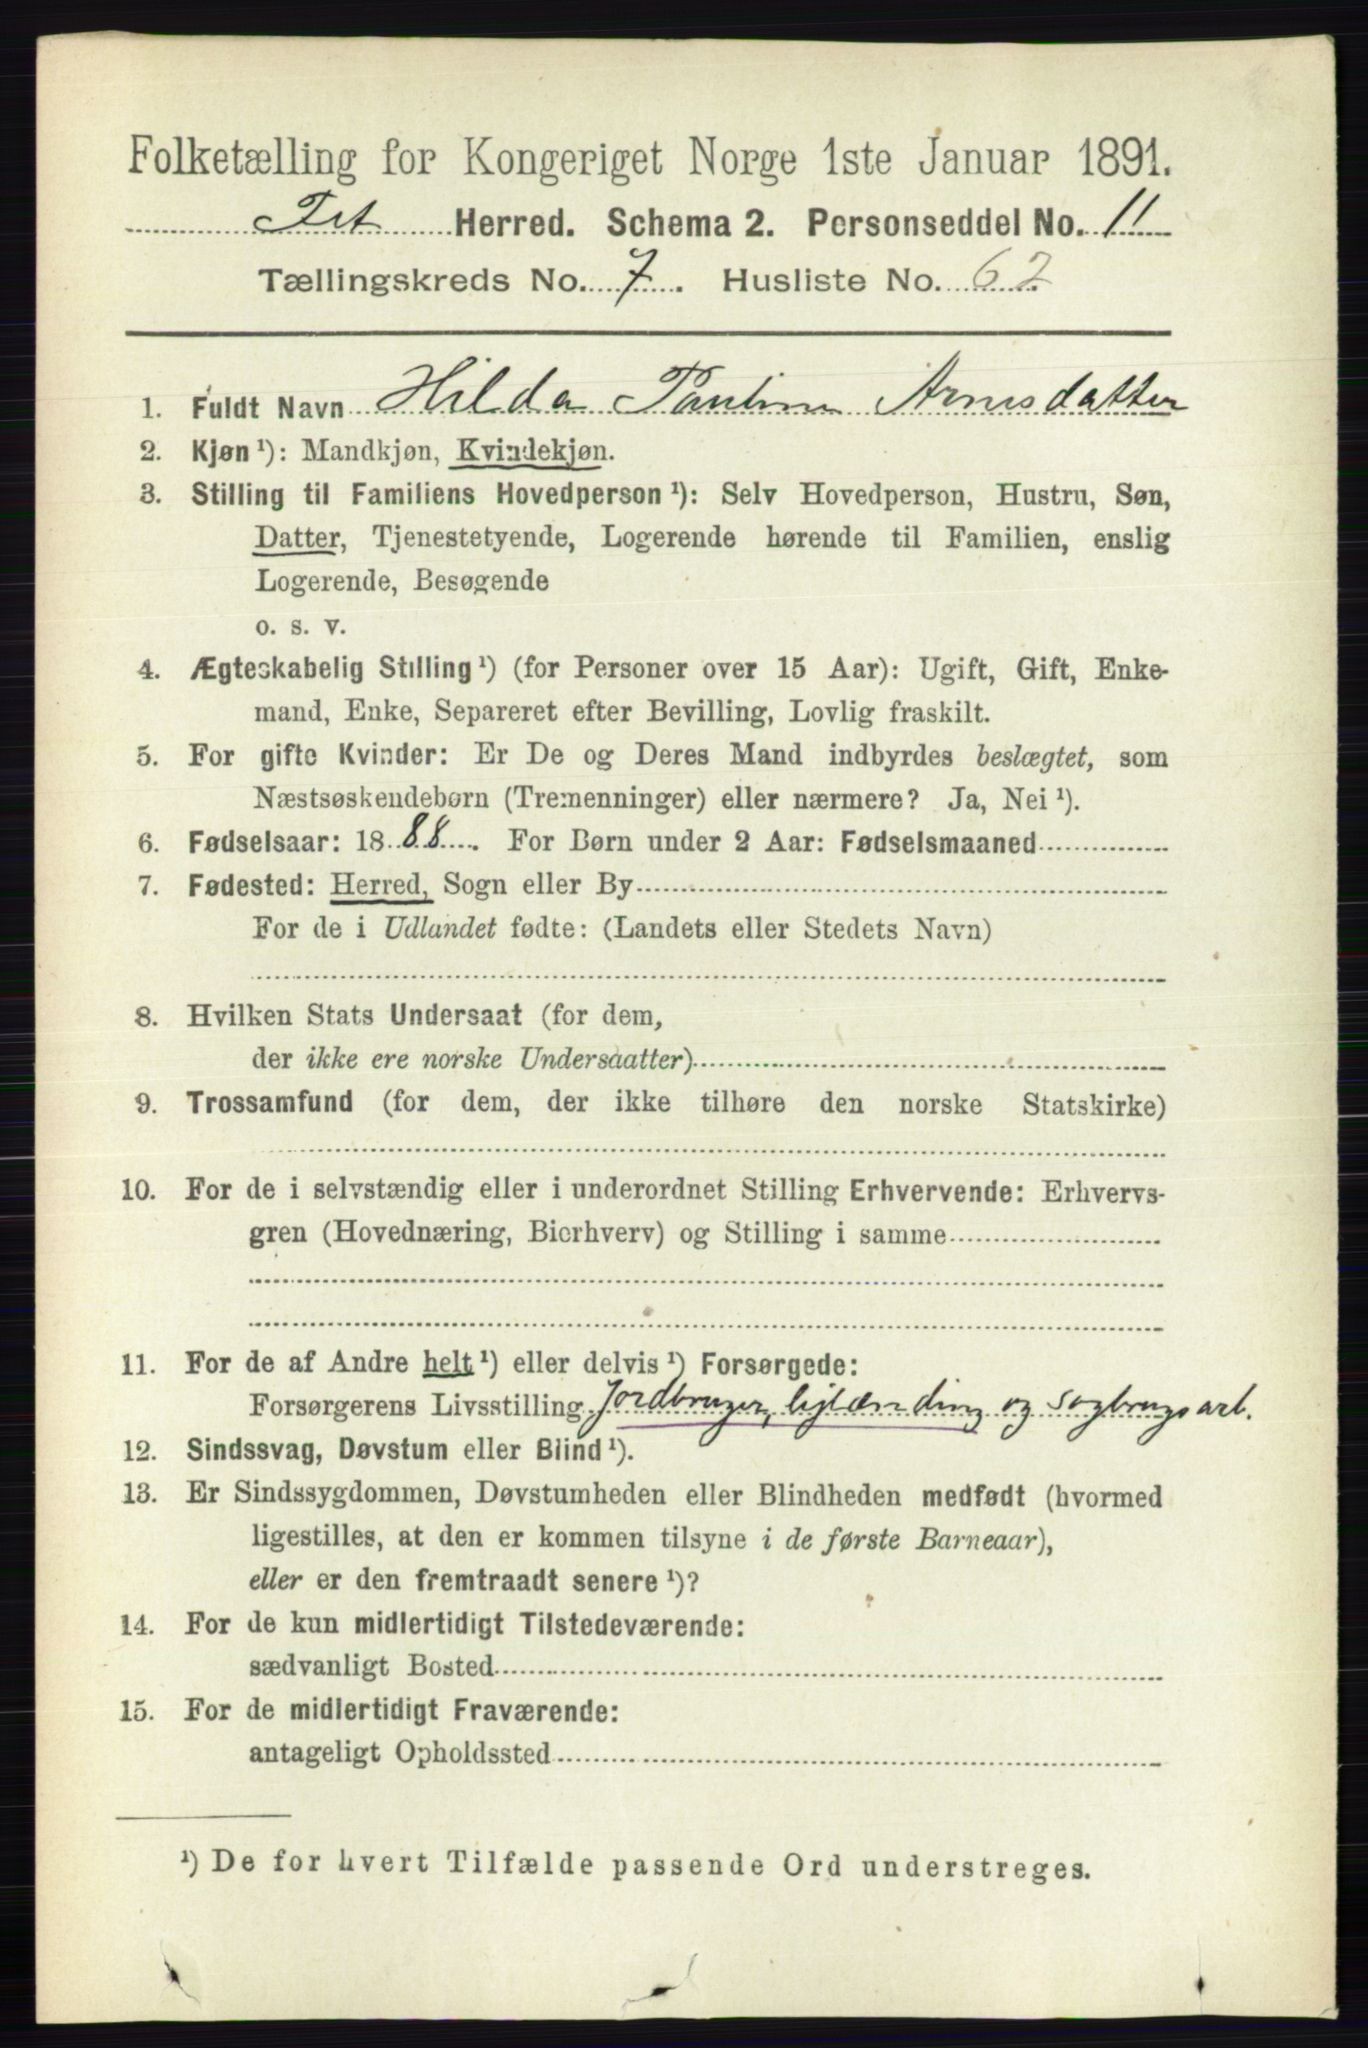 Folketælling for Kongeriget Norge 1ste Januar 1891.
Fet Herred. Schema 2. Personseddel No. 11
Tællingskreds No. 7. Husliste No. 62
1. Fuldt Navn Hilda Pauline Arnesdatter
2. Kjøn ¹): Mandkjøn, Kvindekjøn.
3. Stilling til Familiens Hovedperson ¹): Selv Hovedperson, Hustru, Søn,
Datter, Tjenestetyende, Logerende hørende til Familien, enslig
Logerende, Besøgende
o. s. v.
4. Ægteskabelig Stilling ¹) (for Personer over 15 Aar): Ugift, Gift, Enke-
mand, Enke, Separeret efter Bevilling, Lovlig fraskilt.
5. For gifte Kvinder: Er De og Deres Mand indbyrdes beslægtet, som
Næstsøskendebørn (Tremenninger) eller nærmere? Ja, Nei ¹).
6. Fødselsaar: 1888. For Børn under 2 Aar: Fødselsmaaned
7. Fødested: Herred, Sogn eller By
For de i Udlandet fødte: (Landets eller Stedets Navn)
8. Hvilken Stats Undersaat (for dem,
der ikke ere norske Undersaatter)
9. Trossamfund (for dem, der ikke tilhøre den norske Statskirke)
10. For de i selvstændig eller i underordnet Stilling Erhvervende: Erhvervs-
gren (Hovednæring, Bierhverv) og Stilling i samme
11. For de af Andre helt ¹) eller delvis ¹) Forsørgede:
Forsørgerens Livsstilling Jordbruger, leilænding og sagbrugsarb.
12. Sindssvag, Døvstum eller Blind ¹).
13. Er Sindssygdommen, Døvstumheden eller Blindheden medfødt (hvormed
ligestilles, at den er kommen tilsyne i de første Barneaar),
eller er den fremtraadt senere ¹)?
14. For de kun midlertidigt Tilstedeværende:
sædvanligt Bosted
15. For de midlertidigt Fraværende:
antageligt Opholdssted
¹) De for hvert Tilfælde passende Ord understreges.